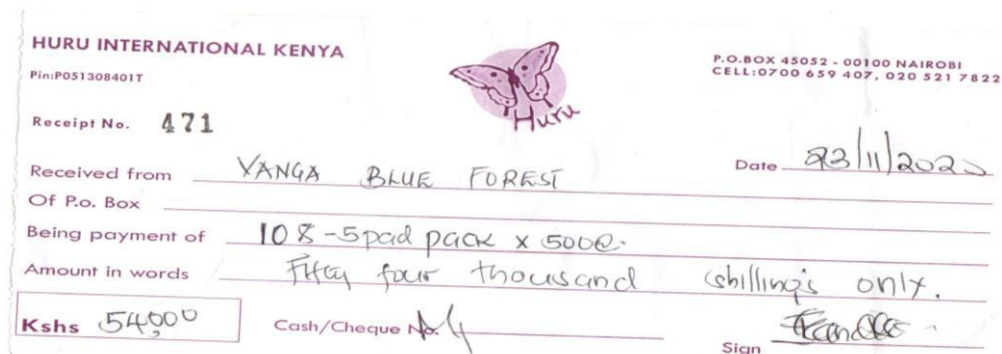 HURU INTERNATIONAL KENYA
Pin:P051308401T
Huru
P.O.BOX 45052 - 00100 NAIROBI
CELL:0700 659 407, 020 521 7822
Receipt No. 471
Date 23/11/202
Received from VANGA BLUE FOREST
Of P.o. Box
Being payment of 108-5pad pack x 500@.
Amount in words Fifty four thousand shillings only.
Kshs 54,000
Cash/Cheque No.
Sign